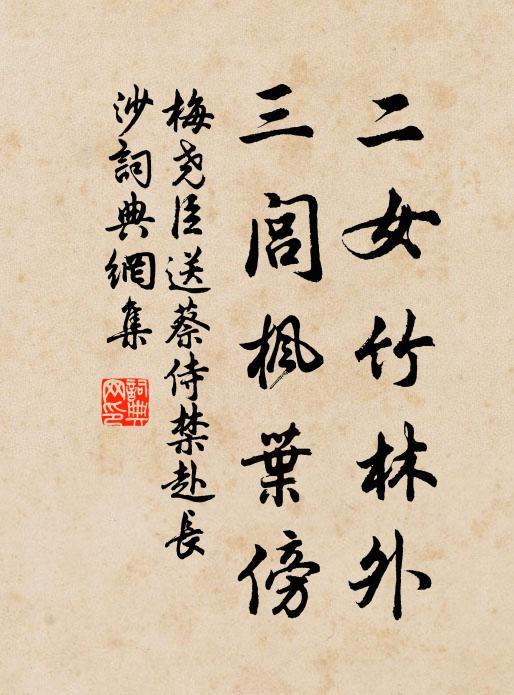 二女竹林外
三閭枫葉傍
梅堯臣送蔡侍禁赴長
沙詞典網集
詞典
网印